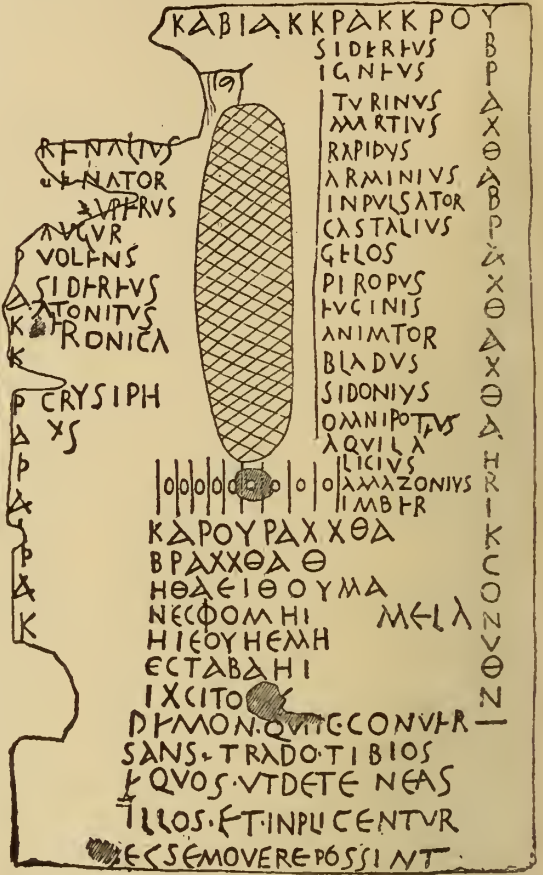 ΚΑΒΙΑΚΚΡΑΚΚΡΟΥ
SIDEREVS
IGNEVS
TVRINVS
MARTIVS
RAPIDVS
ARMINIVS
INPVLSATOR
CASTALIVS
GELOS
PIROPVS
EVGINIS
ANIMTOR
BLADVS
SIDONIVS
OMNIPOTVS
AQVILA
LICIVS
AMAZONIVS
IMBER
RENATIVS
ENATOR
VPERVS
AVGVR
VOLENS
SIDEREVS
ATONITVS
RONICA
CRYSIPH
XS
ΚΑΡΟΥΡΑΧΧΘΑ
ΒΡΑΧΧΘΑ Θ
ΗΘΑΕΙΘΟΥΜΑ
ΝΕϹΦΟΜΗΙ
MELA
ΗΙΕΟΥΗΕΜΗ
ΕϹΤΑΒΑΗΙ
IXCITO
DEMON·QVITC·CONVER
SANS·TRADO·TIBIOS
EQVOS·VTDETE NEAS
ILLOS·ET·INPLICENTVR
ECSEMOVEREPOSSINT